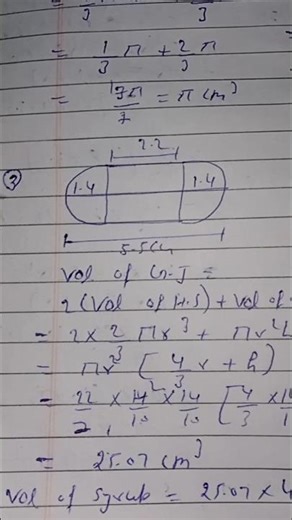 3 3
= 1/3 π + 2/3 π
= 3π/7 = π cm³
③
2.2
1.4 1.4
5.5cm
Vol of G.J =
2(Vol of H.S) + Vol of
= 2 x 2 πr³ + πr²h
= πr³ [4/3 r + h]
= 22/7 x 14/10 x 14/10 [4/3 x
= 25.07 cm³
Vol of Syrup = 25.07 x